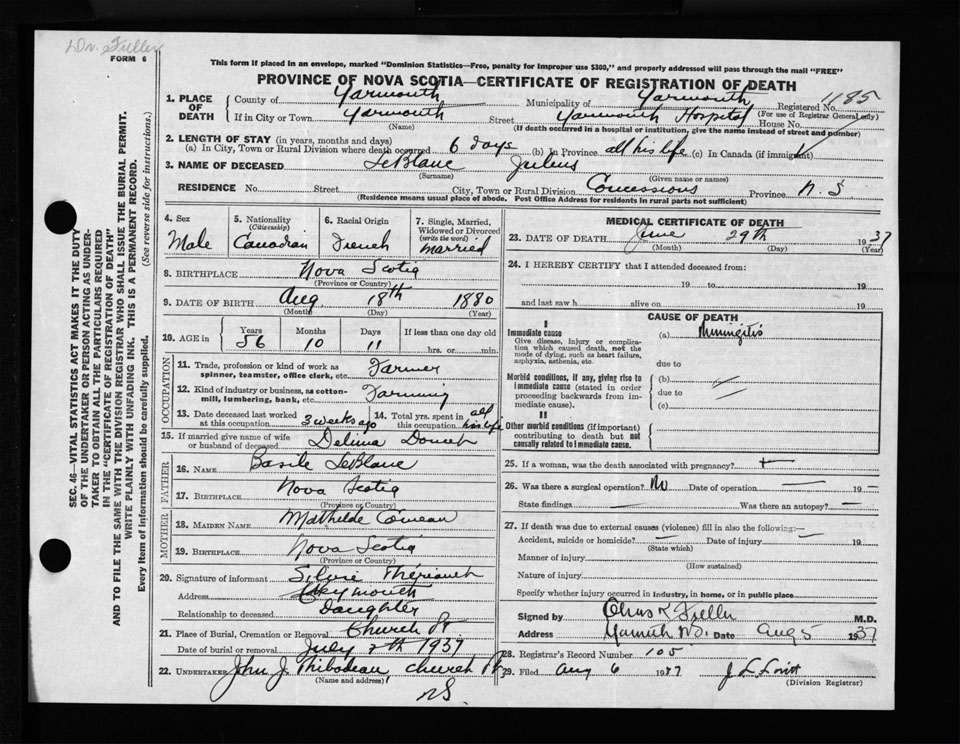 Dr. Fuller
FORM 6
This form if placed in an envelope, marked "Dominion Statistics—Free, penalty for improper use $300," and properly addressed will pass through the mail "FREE"
PROVINCE OF NOVA SCOTIA—CERTIFICATE OF REGISTRATION OF DEATH
1. PLACE OF DEATH
County of Yarmouth Municipality of Yarmouth Registered No. 1185
(For use of Registrar General only)
If in City or Town Yarmouth Street Yarmouth Hospital House No.
(Name) (If death occurred in a hospital or institution, give the name instead of street and number)
2. LENGTH OF STAY (in years, months and days)
(a) In City, Town or Rural Division where death occurred 6 days (b) In Province all his life (c) In Canada (if immigrant)
3. NAME OF DECEASED LeBlanc Julius
(Surname) (Given name or names)
RESIDENCE No. Street City, Town or Rural Division Concessions Province N. S
(Residence means usual place of abode. Post Office Address for residents in rural parts not sufficient)
4. Sex Male
5. Nationality (Citizenship) Canadian
6. Racial Origin French
7. Single, Married, Widowed or Divorced (write the word) Married
8. BIRTHPLACE Nova Scotia
(Province or Country)
9. DATE OF BIRTH Aug 18th 1880
(Month) (Day) (Year)
10. AGE in Years Months Days If less than one day old
56 10 11 hrs. or min.
OCCUPATION
11. Trade, profession or kind of work as spinner, teamster, office clerk, etc. Farmer
12. Kind of industry or business, as cotton-mill, lumbering, bank, etc. Farming
13. Date deceased last worked at this occupation 3 weeks ago
14. Total yrs. spent in this occupation all his life
15. If married give name of wife or husband of deceased Delima
FATHER
16. NAME Basile LeBlanc
17. BIRTHPLACE Nova Scotia
(Province or Country)
MOTHER
18. MAIDEN NAME Mathilde Comeau
19. BIRTHPLACE Nova Scotia
(Province or Country)
20. Signature of informant Thériault
Address
Relationship to deceased Daughter
21. Place of Burial, Cremation or Removal Church Pt
Date of burial or removal July 1937
22. UNDERTAKER John J Thibodeau, Church Pt
(Name and address)
NS
MEDICAL CERTIFICATE OF DEATH
23. DATE OF DEATH June 29th 1937
(Month) (Day) (Year)
24. I HEREBY CERTIFY that I attended deceased from:
19 to 19
and last saw h alive on 19
CAUSE OF DEATH
I
Immediate cause
Give disease, injury or complication which caused death, not the mode of dying, such as heart failure, asphyxia, asthenia, etc.
(a) Meningitis
due to
Morbid conditions, if any, giving rise to immediate cause (stated in order proceeding backwards from immediate cause).
(b)
due to
(c)
II
Other morbid conditions (if important) contributing to death but not causally related to immediate cause.
25. If a woman, was the death associated with pregnancy?
26. Was there a surgical operation? No Date of operation — 19 —
State findings — Was there an autopsy? —
27. If death was due to external causes (violence) fill in also the following:—
Accident, suicide or homicide? — Date of injury — 19
(State which)
Manner of injury
(How sustained)
Nature of injury
Specify whether injury occurred in industry, in home, or in public place
Signed by M.D.
Address Date Aug 5 1937
28. Registrar's Record Number 105
29. Filed Aug 6 1937
(Division Registrar)
SEC. 46—VITAL STATISTICS ACT MAKES IT THE DUTY
OF THE UNDERTAKER OR PERSON ACTING AS UNDER-
TAKER TO OBTAIN ALL THE PARTICULARS REQUIRED
IN THE "CERTIFICATE OF REGISTRATION OF DEATH"
AND TO FILE THE SAME WITH THE DIVISION REGISTRAR WHO SHALL ISSUE THE BURIAL PERMIT.
WRITE PLAINLY WITH UNFADING INK. THIS IS A PERMANENT RECORD.
Every item of information should be carefully supplied. (See reverse side for instructions.)